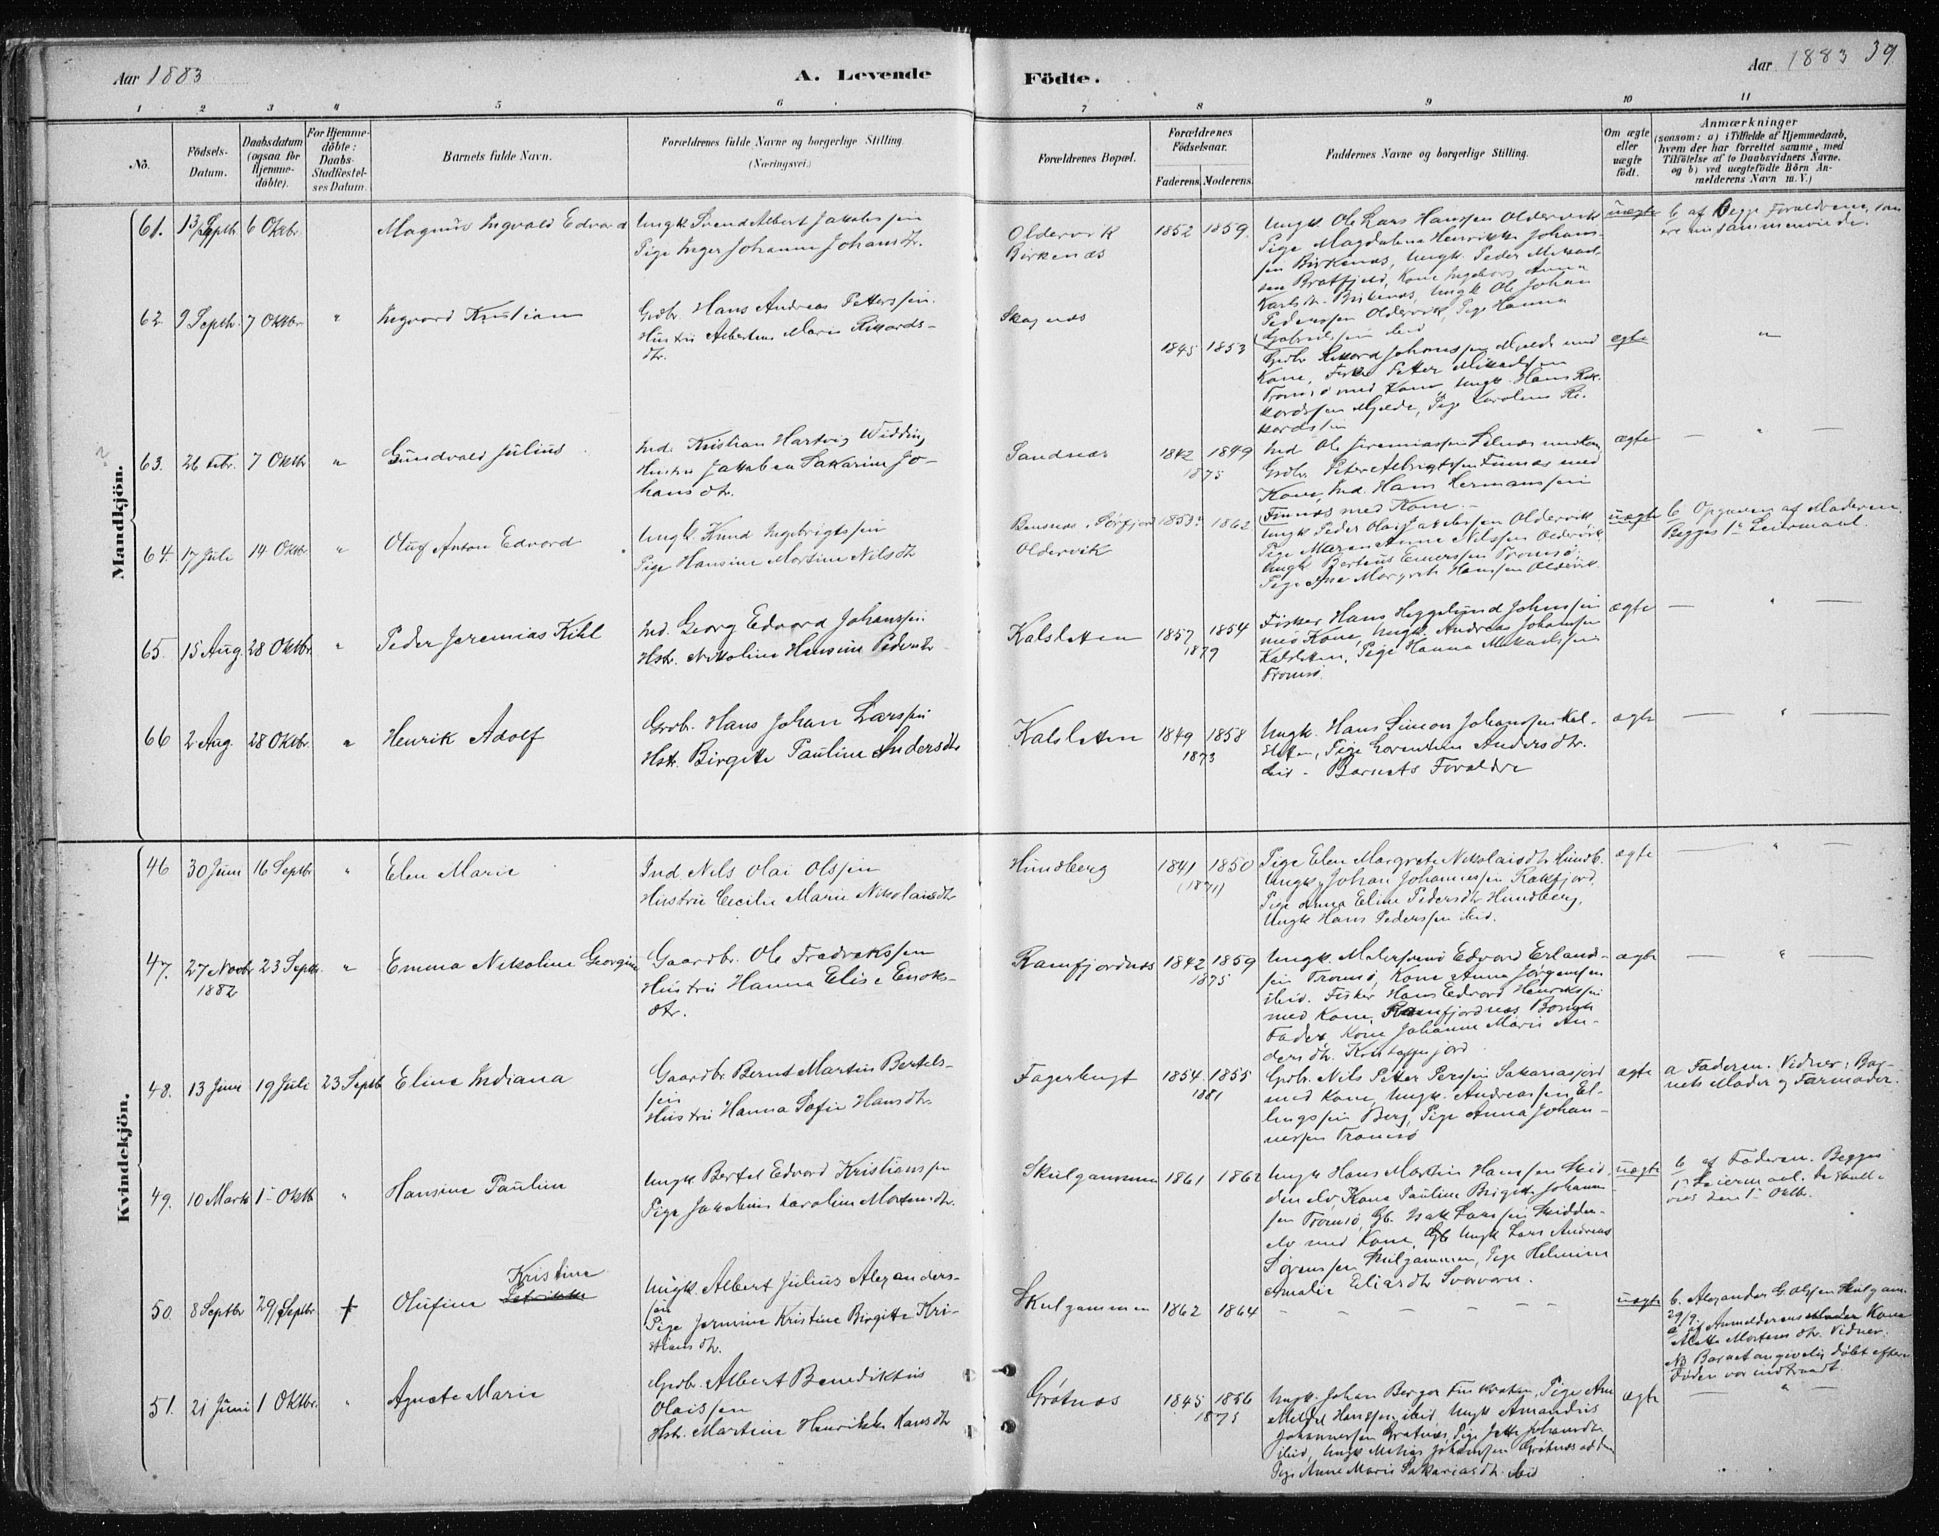 Aar 1883
A. Levende
Födte.
Aar 1883 39
1 2 3 4 5 6 7 8 9 10 11
No.
Födsels-
Datum.
Daabsdatum
(ogsaa for
Hjemme-
døbte).
For Hjemme-
døbte:
Daabs-
Stadfæstel-
ses Datum.
Barnets fulde Navn.
Forældrenes fulde Navne og borgerlige Stilling
(Næringsvei.)
Forældrenes Bopæl.
Forældrenes
Födselsaar.
Faderens. Moderens.
Faddernes Navne og borgerlige Stilling.
Om ægte
eller
uægte
födt.
Anmærkninger
(saasom: a) i Tilfælde af Hjemmedaab,
hvem der har forrettet samme, med
Tilföielse af to Daabsvidners Navne.
og b) ved uægtefödte Börn An-
melderens Navn m. V.)
Mandkjön.
61. 13 Septb. 6 Oktbr
Magnus Ingvald Edvard
Ungk Svend Albert Jakobssen
Pige Inger Johanna Johansdtr.
Oldervik
Birkenæs
1852 1859
Ungk. Ole Lars Hanssen Oldervik
Pige Magdalena Henrikke Johans-
sen Birkenæs, Ungk. Peder Mikael-
sen Bratfjeld, Kone Ingeborg Anna
Karlsdtr. Birkenæs, Ungk Ole Johan
Pederssen Oldervik, Pige Hanna
Gabrielssen ibid
uægte
b af Begge Forældrene, som
ere nu sammenviede.
62. 9 Septb. 7 Oktbr "
Ingvard Kristian
Grdbr. Hans Andreas Petterssen.
Hustru Albertine Marie Rikards-
dtr.
Skognæs
1845 1853
Grdbr Rikard Johanssen Mjelde med
Kone, Fisker Petter Mikaelssen
Tromsø med Kone, Ungk. Hans Rik-
kardssen Mjelde, Pige Karoline Ri-
kardssen
ægte "
63. 26 Febr. 7 Oktbr "
Gundvald Julius
Ind. Kristian Hartvig Widding
Hustru Jakobea Sakarine Jo-
hansdtr.
Sandnæs
1842 1849
1875
Ind Ole Jeremiassen Selnæs med Kone
Grdbr. Peter Albrigtssen Finnæs med
Kone, Ind. Hans Hermanssen
Finnæs med Kone -
ægte - " -
64. 17 Juli 14 Oktbr "
Oluf Anton Edvard
Ungk. Knud Ingebrigtssen
Pige Hansine Martine Nilsdtr
Bensnæs, Sørfjord
Oldervik
1853 1862
Ungk Peder Olai Jakobssen Oldervik
Pige Maren Anne Nilssen Oldervik
Ungk Berteus Einerssen Tromsø
Pige Ane Margrete Hanssen Oldervik.
uægte
b Opgaven af Moderen.
Begges 1ste Leiermaal.
65. 15 Aug. 28 Oktbr. "
Peder Jeremias Kihl
Ind. Georg Edvard Johanssen
Hstr. Nikoline Hansine Pedersdtr
Kalsletten
1857 1854
1879
Fisker Hans Heggelund Johnssen
med Kone, Ungk. Andreas Johanssen
Kalsletten, Pige Hanna Mikaelssen
Tromsø.
ægte - " -
66 2 Aug. 28 Oktbr. "
Henrik Adolf
Grdb. Hans Johan Larssen
Hstr. Birgitte Pauline Andersdtr
Kalsletten
1849 1858
1873
Ungk. Hans Simon Johanssen Kal-
sletten, Pige Lorentine Andersdtr.
ibid - Barnets Forældre
ægte - " -
Kvindekjön.
46 30 Juni 16 Septbr "
Elen Marie
Ind Nils Olai Olssen
Hustru Cecilie Marie Nikolaisdtr
Hundberg
1841 1850
(1871)
Pige Elen Margrete Nikolaisdtr Hundb.
Ungk. Johan Johannessen Rakfjord.
Pige Anna Eline Pedersdtr Hundberg,
Ungk Hans Pederssen ibid.
ægte - " -
47. 27 Novbr 23 Septb. "
1882
Emma Nikoline Georgine
Gaardbr. Ole Fredrikssen
Hustru Hanna Elise Enoks-
dtr.
Ramfjordnæs
1842 1859
1875
Ungk. Malersvend Edvard Erland-
sen Tromsø, Kone Anna Jørgensen
ibid. Fisker Hans Edvard Henrikssen
med Kone, Ramfjordnæs
Fader, Kone Johanna Marie An-
dersdtr.
ægte - " -
48. 13 Juni 19 Juli 23 Septb
Eline Indiana
Gaardbr. Bernt Martin Bertels-
sen
Hustru Hanna Sofie Hansdtr.
Fagerbugt
1854 1855
1881
Grdbr. Nils Petter Perssen Sakariasjord
med Kone, Ungk. Andreas El-
lingssen Berg, Pige Anna Johan-
nessen Tromsø
ægte
a Faderen. Vidner: Bar-
nets Moder og Farmoder.
49. 10 Marts 1ste Oktbr "
Hansine Pauline
Ungk Bertel Edvard Kristianssen
Pige Jakobine Karoline Mortensdtr.
Skulgammen
1861 1862
Ungk Hans Martin Hanssen Skid-
denelv, Kona Pauline Birgitte Johann-
sen Tromsø, Gb. Isak Larssen Skidden-
elv med Kone, Ungk Lars Andreas
Sørenssen Skulgammen, Pige Helmine
Amalie Eliasdtr Svarvaren.
uægte
b af Faderen. Begges
1ste Leiermaal. De skulle
vies den 1ste Oktb.
50. 8 Septbr 29/9 Septbr. +
Kristine
Olufine
Ungk. Albert Julius Alexanders-
sen
Pige Jermine Kristine Birgitte Kri-
stiansdtr.
Skulgammen
1862 1864
- - - - - -
uægte
b. Alexander G. Olssen Skulgam.
29/9.
a af Anmelderens Moder Kona
Aletta Mortensdtr. Vidner.
NB Barnet angivelig døbt efter
Døden var indtraadt.
51. 21 Juni 1 Oktbr. "
Agnete Marie
Grdbr. Albert Benediktus
Olaissen
Hstr. Martine Henrikke Hansdtr
Grøtnæs
1845 1856
1875
Ungk. Johan Berger Finkroken, Pige An.
Meldel Hanssen ibid, Ungk Amandus
Johannessen Grøtnæs, Pige Jette Johansdtr
ibid, Ungk Mathias Johanssen Grøtnæs
Pige Anne Marie Sakariasdtr. ibid
ægte - " -